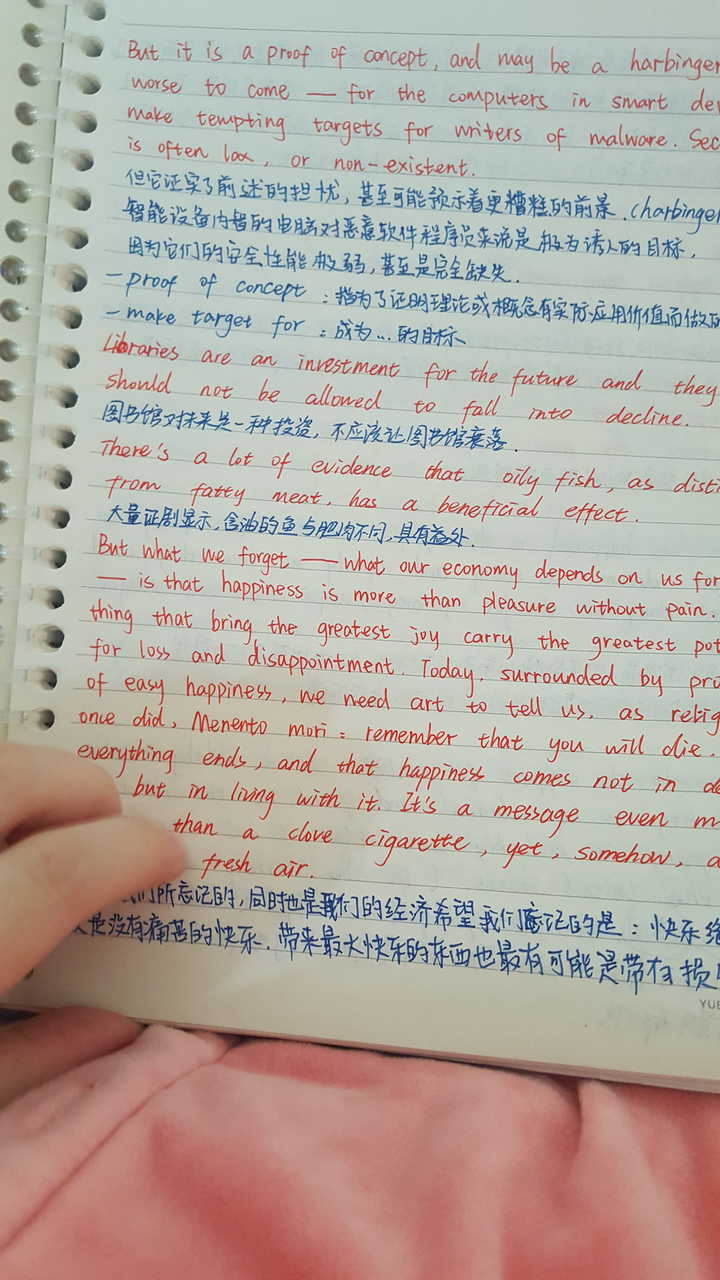 But it is a proof of concept, and may be a harbinger
worse to come — for the computers in smart de
make tempting targets for writers of malware. Sec
is often lax, or non-existent.
但它证实了前述的担忧,甚至可能预示着更糟糕的前景.(harbinger
智能设备内置的电脑对恶意软件程序员来说是极为诱人的目标,
因为它们的安全性能极弱,甚至是完全缺失.
-proof of concept:指为了证明理论或概念有实际应用价值而做的
-make target for:成为...的目标
Libraries are an investment for the future and they
should not be allowed to fall into decline.
图书馆对未来是一种投资,不应该让图书馆衰落.
There's a lot of evidence that oily fish, as disti
from fatty meat, has a beneficial effect.
大量证剧显示,含油的鱼与肥肉不同,具有益处.
But what we forget — what our economy depends on us for
— is that happiness is more than pleasure without pain.
thing that bring the greatest joy carry the greatest pot
for loss and disappointment. Today, surrounded by pro
of easy happiness, we need art to tell us, as relig
once did, Menento mori: remember that you will die.
everything ends, and that happiness comes not in de
but in living with it. It's a message even m
than a clove cigarette, yet, somehow, a
fresh air.
们所忘记的,同时也是我们的经济希望我们忘记的是:快乐
是没有痛苦的快乐.带来最大快乐的东西也最有可能是带有损
YUE